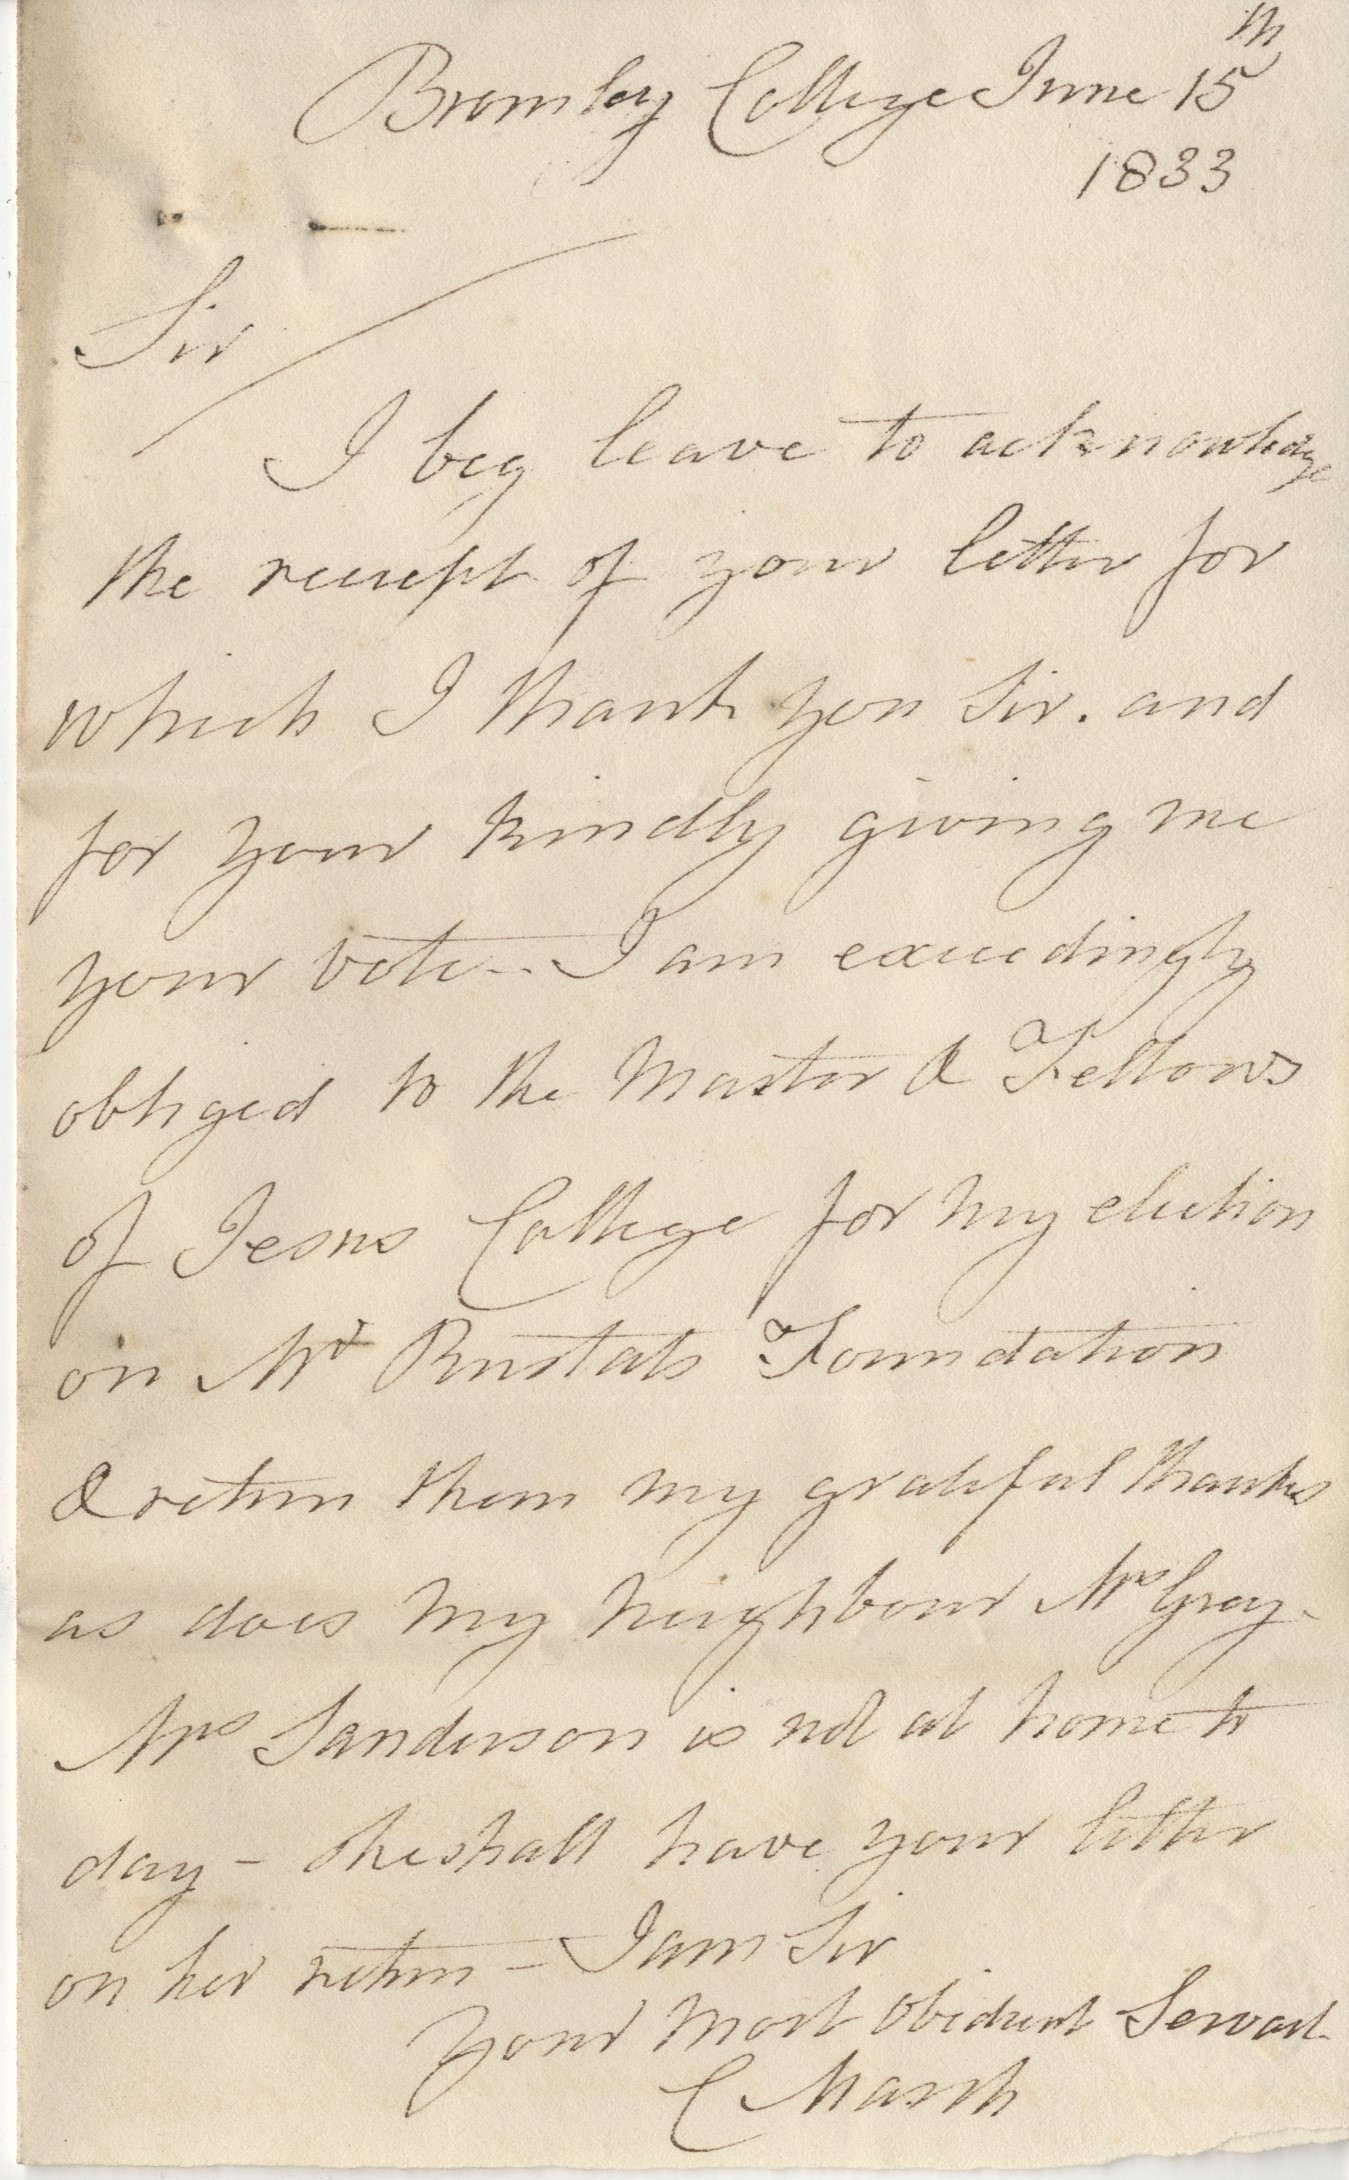 Bromley College June 15th
1833
Sir
I beg leave to acknowledge
the receipt of your letter for
which I thank you Sir. and
for your kindly giving me
your vote - I am exceedingly
obliged to the Master & Fellows
of Jesus College for my election
on Mr Rustats Foundation
& return them my grateful thanks
as does my neighbour Mrs Gray -
Mrs Sanderson is not at home to
day - she shall have your letter
on her return - I am Sir
Your most obedient Servant
C Marsh